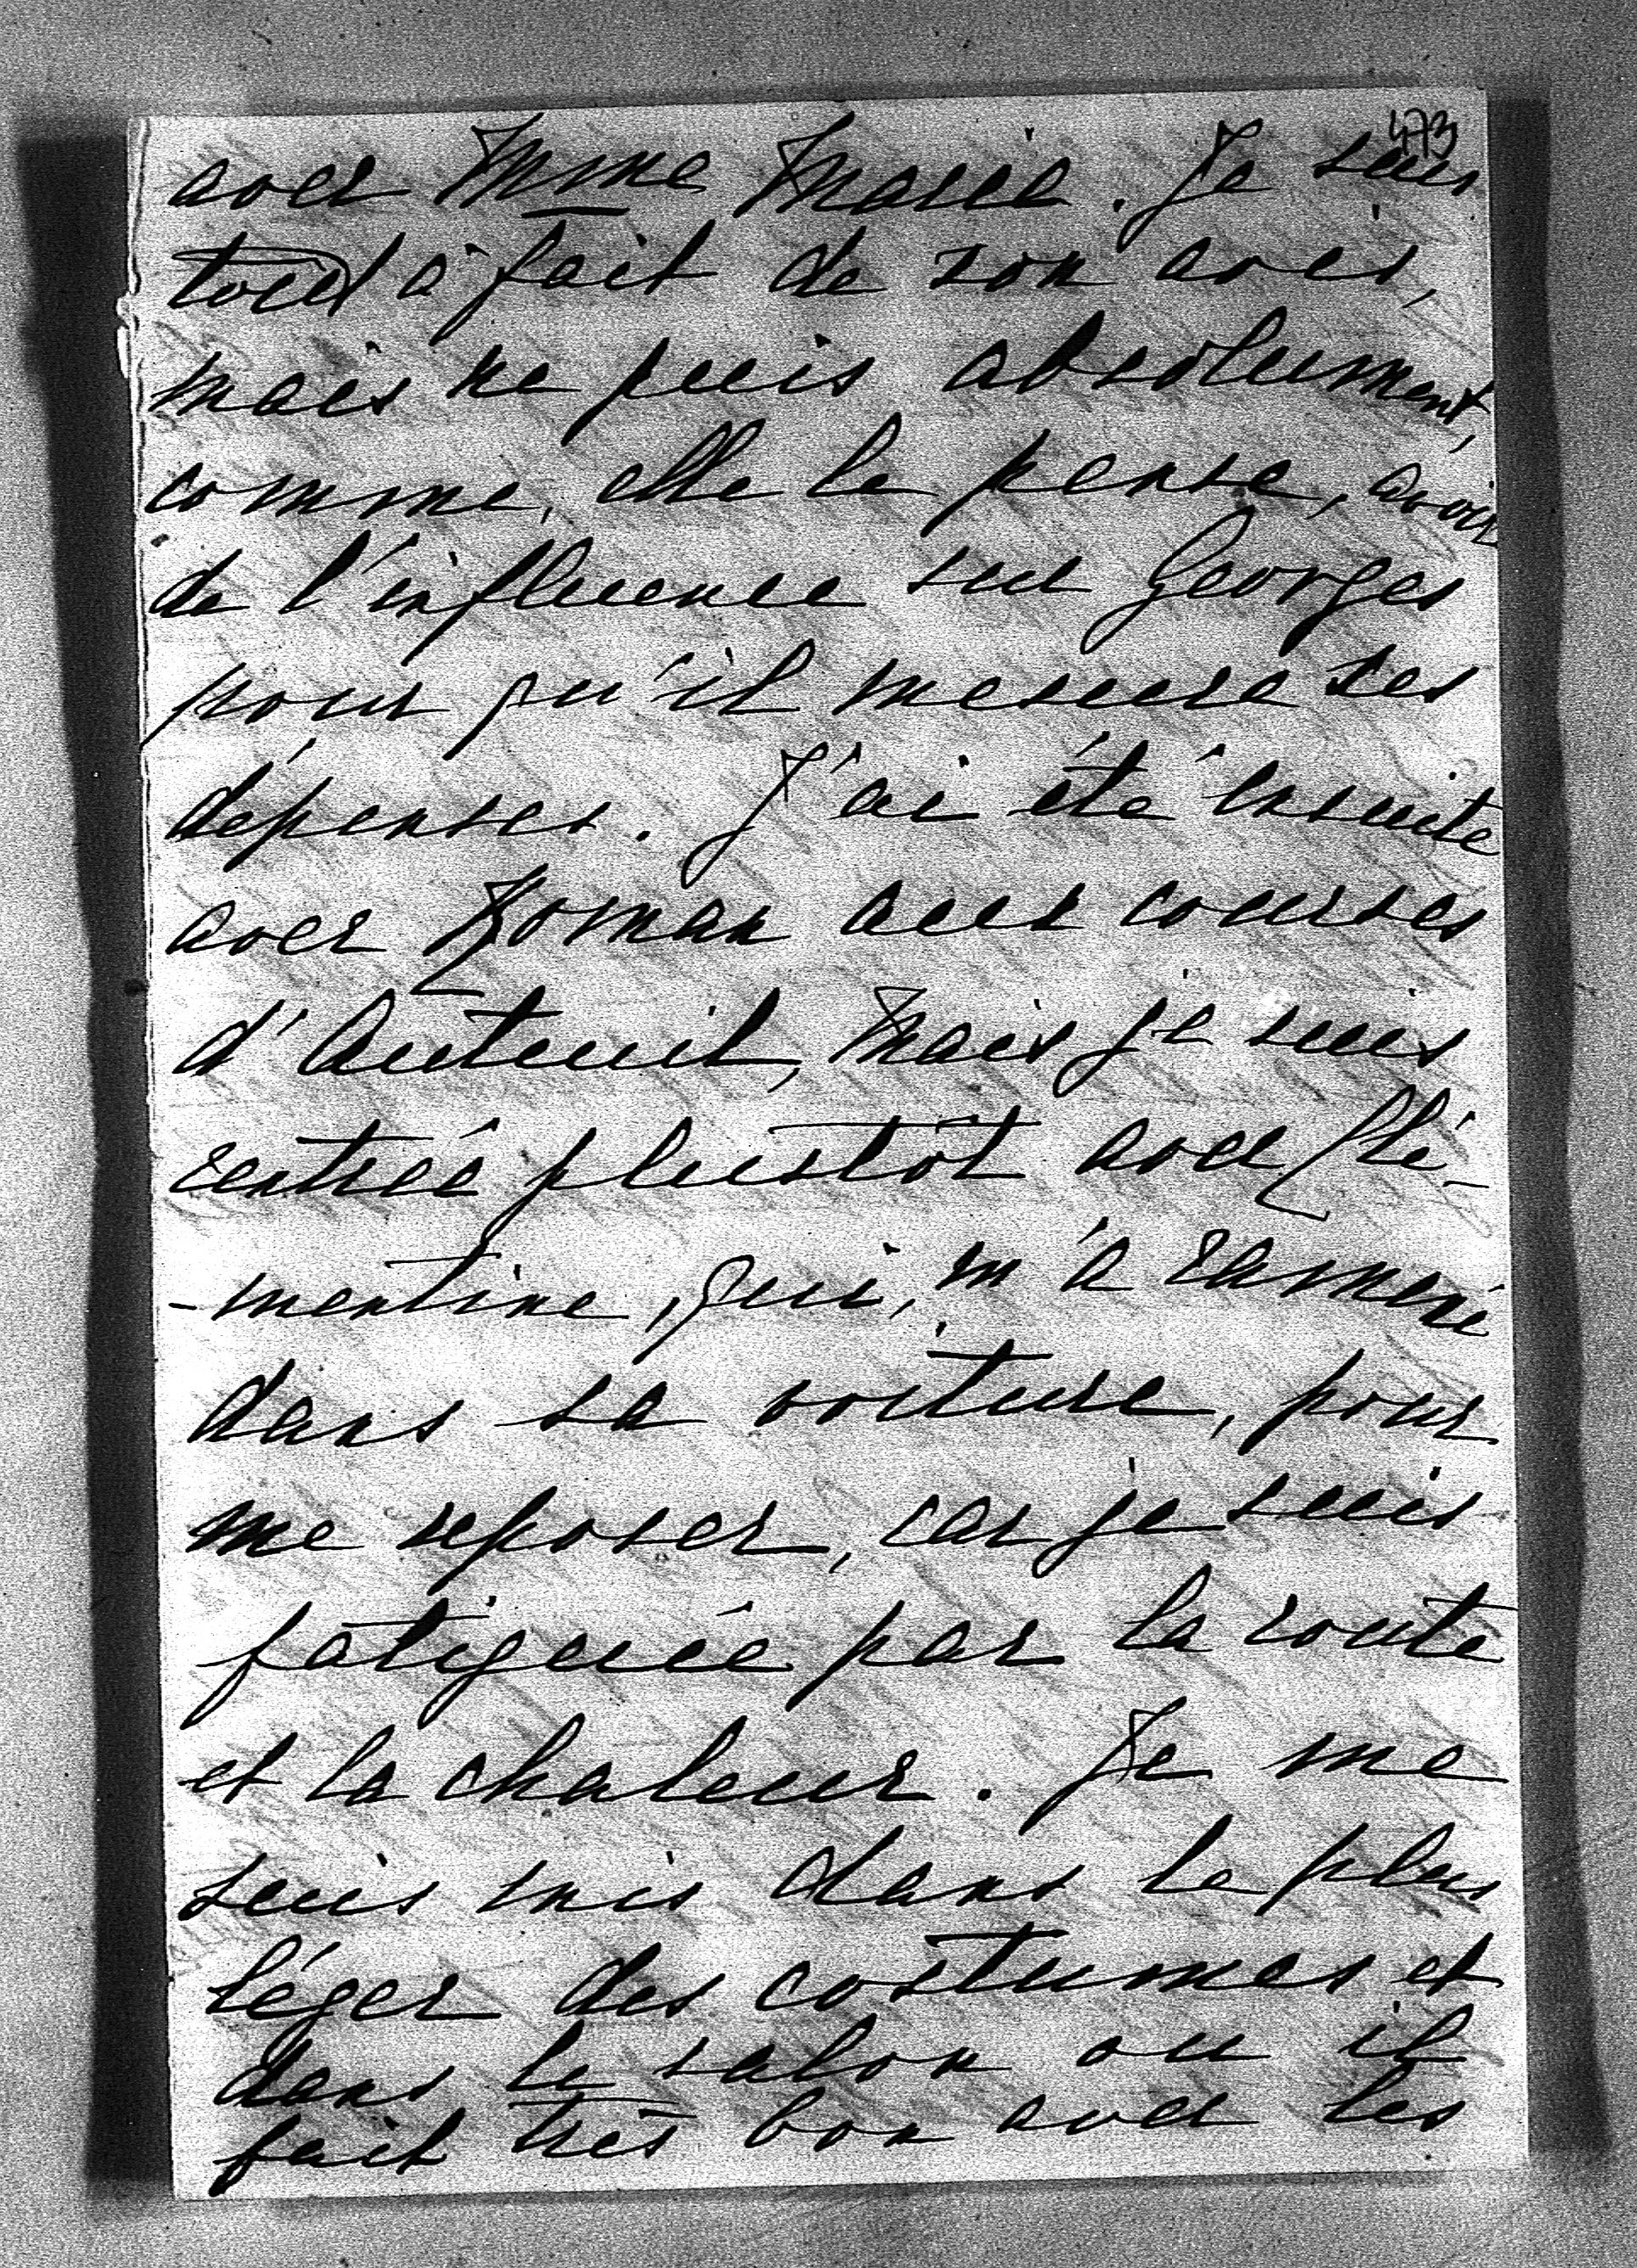 473
avec Mme Marie. Je suis
tout à fait de son avis,
mais ne puis absolument,
comme, elle le pense, avoir
de l'influence sur Georges
pour qu'il mesure ses
dépenses. J'ai été ensuite
avec Roman aux courses
d'Auteuil, mais je suis
rentrée plustôt avec Clé-
-mentine, qui, m'a ramené
dans sa voiture, pour
me reposer, car je suis
fatiguée par la route
et la chaleur. Je me
suis mis dans le plus
léger des costumes et
dans le salon ou il
fait très bon avec les